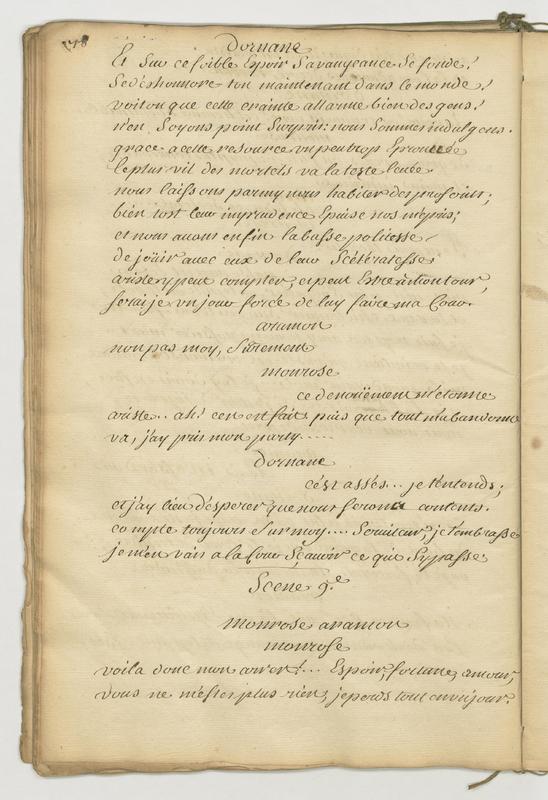 178
Dornane
Et Sur ce foible Espoir Sa vangeance Se fonde!
Se déshonore ton maintenant dans le monde!
voit on que cette crainte allarme bien des gens!
n'en Soyons point Surpris: nous Sommes indulgens.
grace a cette resource un peu trop Eprouuée
le plus vil des mortels va la teste leuée
nous laissons parmy nous habiter des profcrits;
bien tost leur imprudence Epuise nos mépris;
et nous auons enfin la basse politesse
de joüir auec eux de leur Scélératesse
aristery peut compter; et peut Estre à son tour,
serai je un jour forcé de luy faire ma Cour.
aramon
non pas moy, Sûrement
monrose
ce denoüement m'etonne
ariste.. ah! c'en est fait, puis que tout m'abandonne
va, j'ay pris mon party.....
Dornane
c'est assés... je t'entends;
et j'ay lieu d'esperer que nous serons contents.
compte toujours Sur moy.... Seruiteur, je t'embrasse
je m'en vais a la Cour Sçauoir ce qui S'y passe
Scene 9.e
monrose aramon
monrose
voila donc mon arret!... Espoir, fortune, amour,
vous ne m'estes plus rien; je perds tout en un jour.